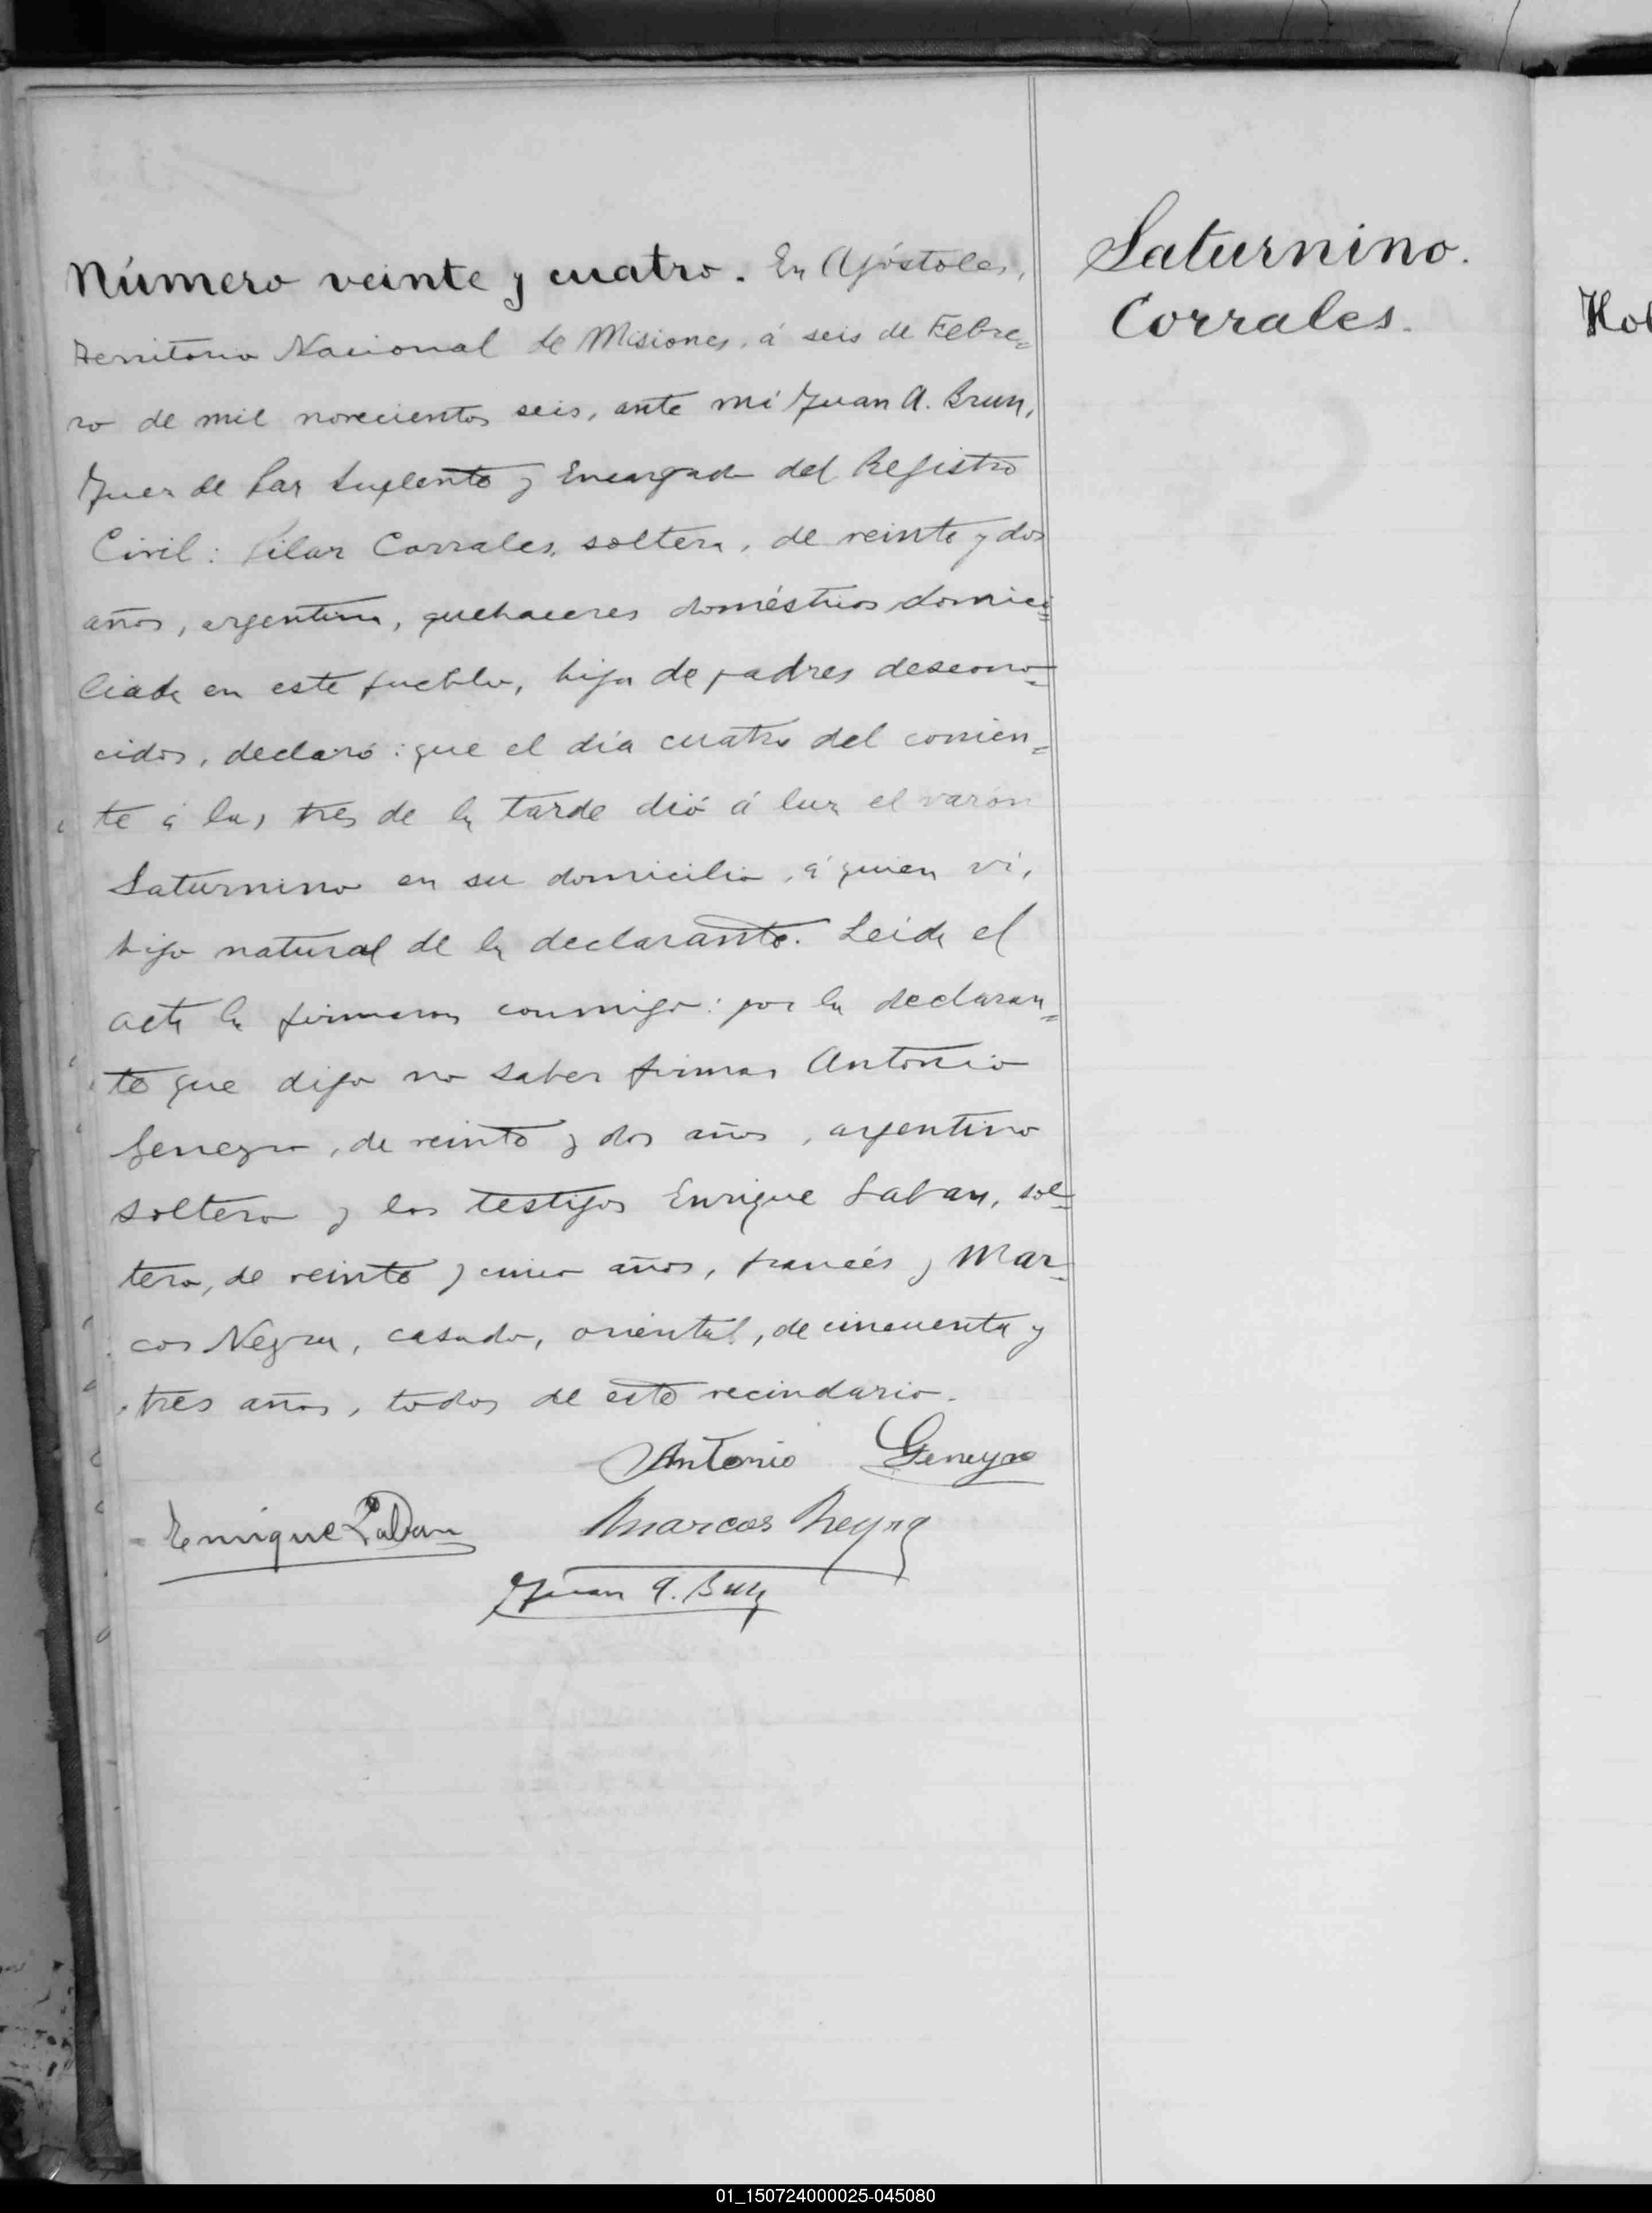 Número veinte y cuatro. En Apóstoles,
Territorio Nacional de Misiones, á seis de Febre=
ro de mil novecientos seis, ante mí Juan A. Brun,
Juez de Paz Suplente y Encargado del Registro
Civil: Pilar Corrales, soltera, de veinte y dos
años, argentina, quehaceres domésticos domici=
liada en este pueblo, hija de padres descono=
cidos, declaró: que el día cuatro del corrien=
te á las tres de la tarde dió á luz el varón
Saturnino en su domicilio, á quien ví,
hijo natural de la declarante. Leida el
acta la firmaron conmigo: por la declaran=
te que dijo no saber firmar Antonio
Geneyro, de veinte y dos años, argentino
soltero y los testigos Enrique Laban, sol=
tero, de veinte y cinco años, francés y Mar=
cos Neyra, casado, oriental, de cincuenta y
tres años, todos de este vecindario.
Antonio Geneyro
Enrique Laban Marcos Neyra
Juan A. Brun
Saturnino.
Corrales.
01_150724000025-045080